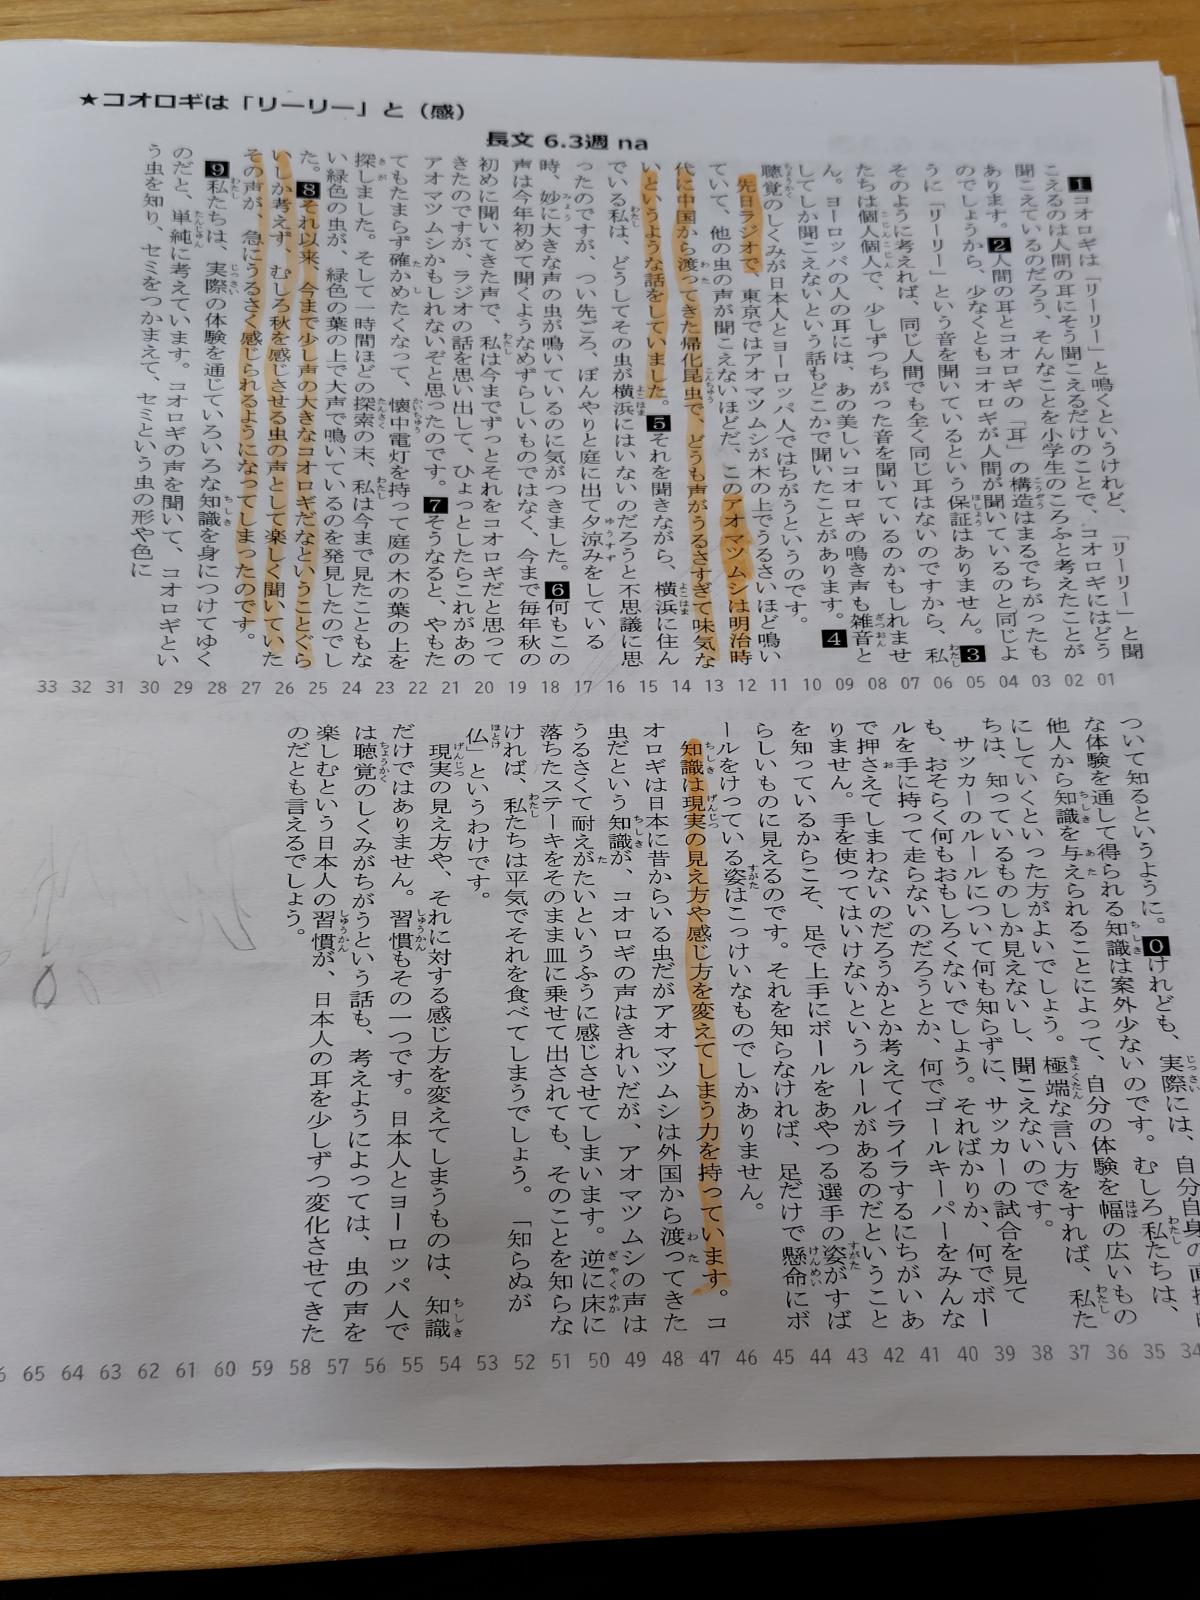 ★コオロギは「リーリー」と（感）
長文 6.3週 na
1コオロギは「リーリー」と鳴くというけれど、「リーリー」と聞
こえるのは人間の耳にそう聞こえるだけのことで、コオロギにはどう
聞こえているのだろう、そんなことを小学生のころふと考えたことが
あります。2人間の耳とコオロギの「耳」の構造はまるでちがったも
のでしょうから、少なくともコオロギが人間が聞いているのと同じよ
うに「リーリー」という音を聞いているという保証はありません。3
そのように考えれば、同じ人間でも全く同じ耳はないのですから、私
たちは個人個人で、少しずつちがった音を聞いているのかもしれませ
ん。ヨーロッパの人の耳には、あの美しいコオロギの鳴き声も雑音と
してしか聞こえないという話もどこかで聞いたことがあります。4
聴覚のしくみが日本人とヨーロッパ人ではちがうというのです。
先日ラジオで、東京ではアオマツムシが木の上でうるさいほど鳴い
ていて、他の虫の声が聞こえないほどだ、このアオマツムシは明治時
代に中国から渡ってきた帰化昆虫で、どうも声がうるさすぎて味気な
いというような話をしていました。5それを聞きながら、横浜に住ん
でいる私は、どうしてその虫が横浜にはいないのだろうと不思議に思
ったのですが、つい先ごろ、ぼんやりと庭に出て夕涼みをしている
時、妙に大きな声の虫が鳴いているのに気がつきました。6何もこの
声は今年初めて聞くようなめずらしいものではなく、今まで毎年秋の
初めに聞いてきた声で、私は今までずっとそれをコオロギだと思って
きたのですが、ラジオの話を思い出して、ひょっとしたらこれがあの
アオマツムシかもしれないぞと思ったのです。7そうなると、やもた
てもたまらず確かめたくなって、懐中電灯を持って庭の木の葉の上を
探しました。そして一時間ほどの探索の末、私は今まで見たこともな
い緑色の虫が、緑色の葉の上で大声で鳴いているのを発見したのでし
た。8それ以来、今まで少し声の大きなコオロギだなということぐら
いしか考えず、むしろ秋を感じさせる虫の声として楽しく聞いていた
その声が、急にうるさく感じられるようになってしまったのです。
9私たちは、実際の体験を通じていろいろな知識を身につけてゆく
のだと、単純に考えています。コオロギの声を聞いて、コオロギとい
う虫を知り、セミをつかまえて、セミという虫の形や色に
01 02 03 04 05 06 07 08 09 10 11 12 13 14 15 16 17 18 19 20 21 22 23 24 25 26 27 28 29 30 31 32 33
ついて知るというように。0けれども、実際には、自分自身の
な体験を通して得られる知識は案外少ないのです。むしろ私たちは、
他人から知識を与えられることによって、自分の体験を幅の広いもの
にしていくといった方がよいでしょう。極端な言い方をすれば、私た
ちは、知っているものしか見えないし、聞こえないのです。
サッカーのルールについて何も知らずに、サッカーの試合を見て
も、おそらく何もおもしろくないでしょう。そればかりか、何でボー
ルを手に持って走らないのだろうとか、何でゴールキーパーをみんな
で押さえてしまわないのだろうかとか考えてイライラするにちがいあ
りません。手を使ってはいけないというルールがあるのだということ
を知っているからこそ、足で上手にボールをあやつる選手の姿がすば
らしいものに見えるのです。それを知らなければ、足だけで懸命にボ
ールをけっている姿はこっけいなものでしかありません。
知識は現実の見え方や感じ方を変えてしまう力を持っています。コ
オロギは日本に昔からいる虫だがアオマツムシは外国から渡ってきた
虫だという知識が、コオロギの声はきれいだが、アオマツムシの声は
うるさくて耐えがたいというふうに感じさせてしまいます。逆に床に
落ちたステーキをそのまま皿に乗せて出されても、そのことを知らな
ければ、私たちは平気でそれを食べてしまうでしょう。「知らぬが
仏」というわけです。
現実の見え方や、それに対する感じ方を変えてしまうものは、知識
だけではありません。習慣もその一つです。日本人とヨーロッパ人で
は聴覚のしくみがちがうという話も、考えようによっては、虫の声を
楽しむという日本人の習慣が、日本人の耳を少しずつ変化させてきた
のだとも言えるでしょう。
34 35 36 37 38 39 40 41 42 43 44 45 46 47 48 49 50 51 52 53 54 55 56 57 58 59 60 61 62 63 64 65